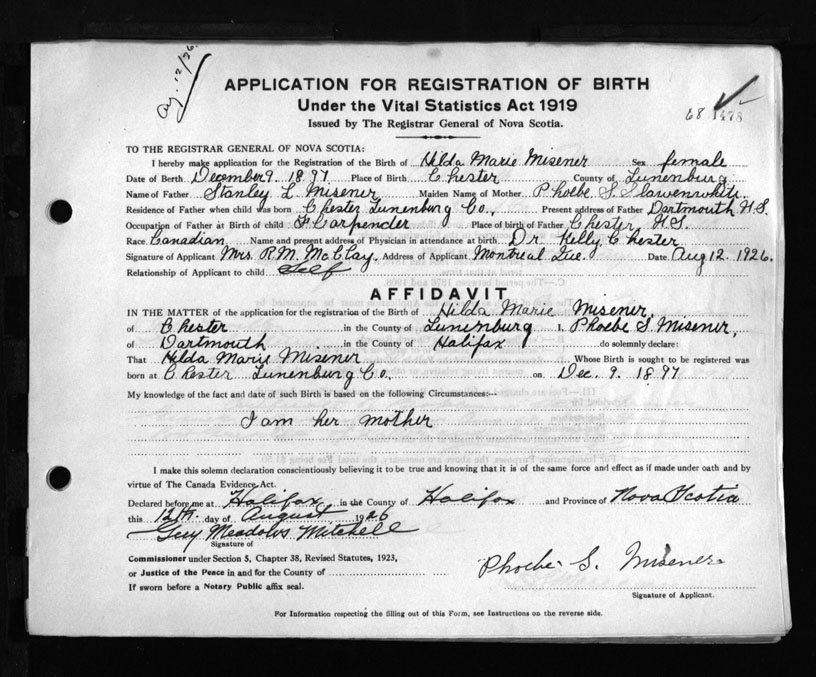 Ag. 12/26.
APPLICATION FOR REGISTRATION OF BIRTH
Under the Vital Statistics Act 1919
68 1478
Issued by The Registrar General of Nova Scotia.
TO THE REGISTRAR GENERAL OF NOVA SCOTIA:
I hereby make application for the Registration of the Birth of Hilda Marie Misener Sex female
Date of Birth December 9. 1897 Place of Birth Chester County of Lunenburg
Name of Father Stanley L. Misener Maiden Name of Mother Phoebe S.
Residence of Father when child was born Chester Lunenburg Co., Present address of Father Dartmouth N.S.
Occupation of Father at Birth of child Carpender Place of birth of Father Chester N.S.
Race Canadian Name and present address of Physician in attendance at birth Dr. Kelly Chester
Signature of Applicant Mrs. R.M. McClay. Address of Applicant Montreal Que. Date Aug 12. 1926.
Relationship of Applicant to child Self
AFFIDAVIT
IN THE MATTER of the application for the registration of the Birth of Hilda Marie Misener,
of Chester in the County of Lunenburg I, Phoebe S. Misener,
of Dartmouth in the County of Halifax do solemnly declare:
That Hilda Marie Misener Whose Birth is sought to be registered was
born at Chester Lunenburg Co., on Dec. 9. 1897
My knowledge of the fact and date of such Birth is based on the following Circumstances:--
I am her mother
I make this solemn declaration conscientiously believing it to be true and knowing that it is of the same force and effect as if made under oath and by
virtue of The Canada Evidence Act.
Declared before me at Halifax in the County of Halifax and Province of Nova Scotia
this 12th day of August 1926
Guy Meadows Mitchell
Signature of
Commissioner under Section 5, Chapter 38, Revised Statutes, 1923,
or Justice of the Peace in and for the County of
Phoebe S. Misener
If sworn before a Notary Public affix seal.
Signature of Applicant.
For Information respecting the filling out of this Form, see Instructions on the reverse side.